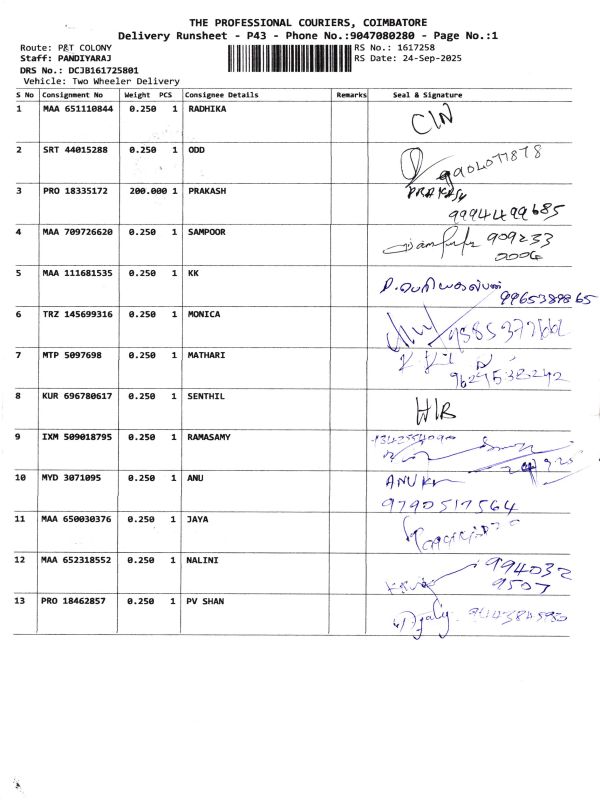 THE PROFESSIONAL COURIERS, COIMBATORE
Delivery Runsheet - P43 - Phone No.:9047080280 - Page No.:1
Route: P&T COLONY RS No.: 1617258
Staff: PANDIYARAJ RS Date: 24-Sep-2025
DRS No.: DCJB161725801
Vehicle: Two Wheeler Delivery
S No Consignment No Weight PCS Consignee Details Remarks Seal & Signature
1 MAA 651110844 0.250 1 RADHIKA
CIN
2 SRT 44015288 0.250 1 ODD
9904077878
3 PRO 18335172 200.000 1 PRAKASH PRAKASH
9994499685
4 MAA 709726620 0.250 1 SAMPOOR
909233
2006
5 MAA 111681535 0.250 1 KK
9965389865
6 TRZ 145699316 0.250 1 MONICA
7 MTP 5097698 0.250 1 MATHARI
9629538242
8 KUR 696780617 0.250 1 SENTHIL
HIB
9 IXM 509018795 0.250 1 RAMASAMY
10 MYD 3071095 0.250 1 ANU ANU
9790517564
11 MAA 650030376 0.250 1 JAYA
12 MAA 652318552 0.250 1 NALINI 994032
9507
13 PRO 18462857 0.250 1 PV SHAN